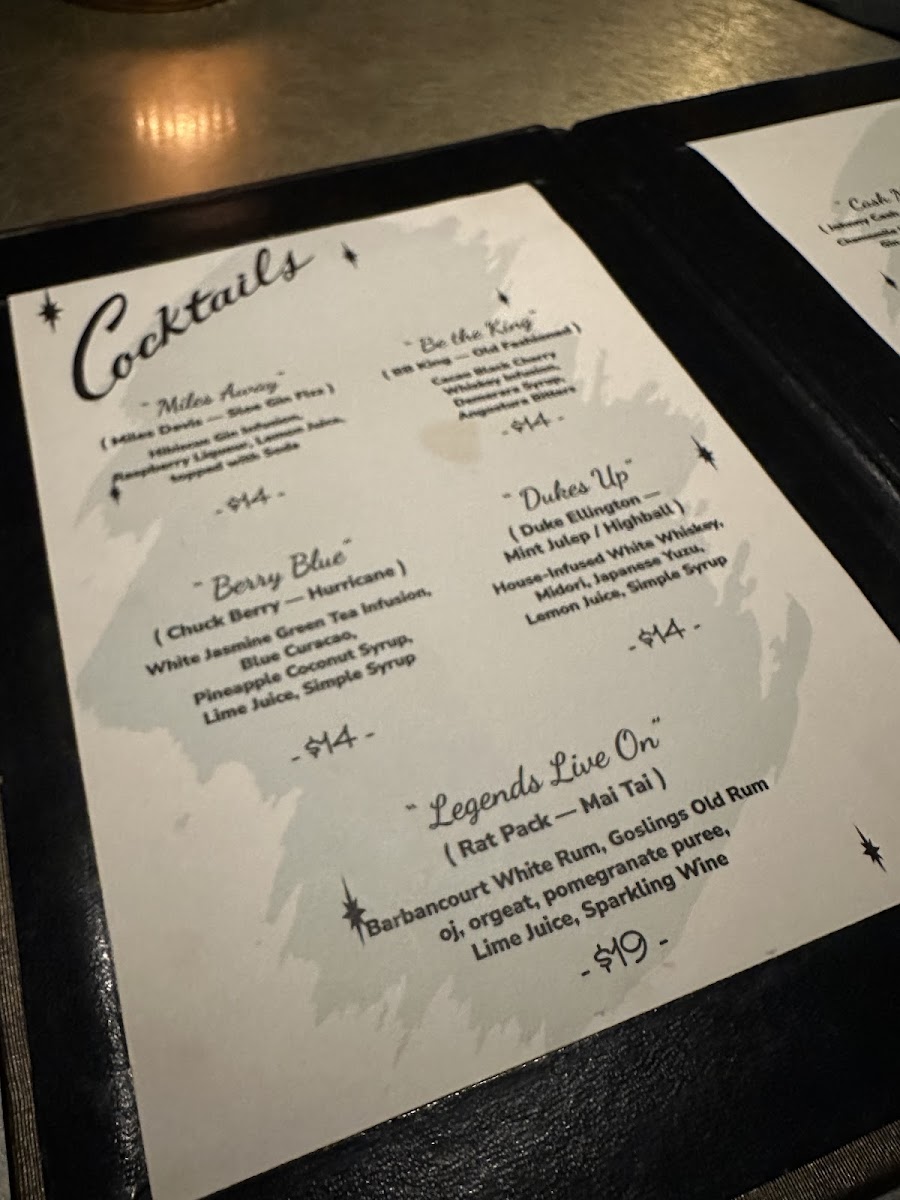 Cocktails
"Miles Away"
( Miles Davis — Sloe Gin Fizz )
Hibiscus Gin Infusion,
Raspberry Liqueur, Lemon Juice,
topped with Soda
- $14 -
"Be the King"
( BB King — Old Fashioned )
Cacao Black Cherry
Whiskey Infusion,
Demerara Syrup,
Angostura Bitters
- $14 -
"Berry Blue"
( Chuck Berry — Hurricane )
White Jasmine Green Tea Infusion,
Blue Curacao,
Pineapple Coconut Syrup,
Lime Juice, Simple Syrup
- $14 -
"Dukes Up"
( Duke Ellington —
Mint Julep / Highball )
House-Infused White Whiskey,
Midori, Japanese Yuzu,
Lemon Juice, Simple Syrup
- $14 -
"Legends Live On"
( Rat Pack — Mai Tai )
Barbancourt White Rum, Goslings Old Rum
oj, orgeat, pomegranate puree,
Lime Juice, Sparkling Wine
- $19 -
"Cash
( Johnny Cash
Chamomile
Gin